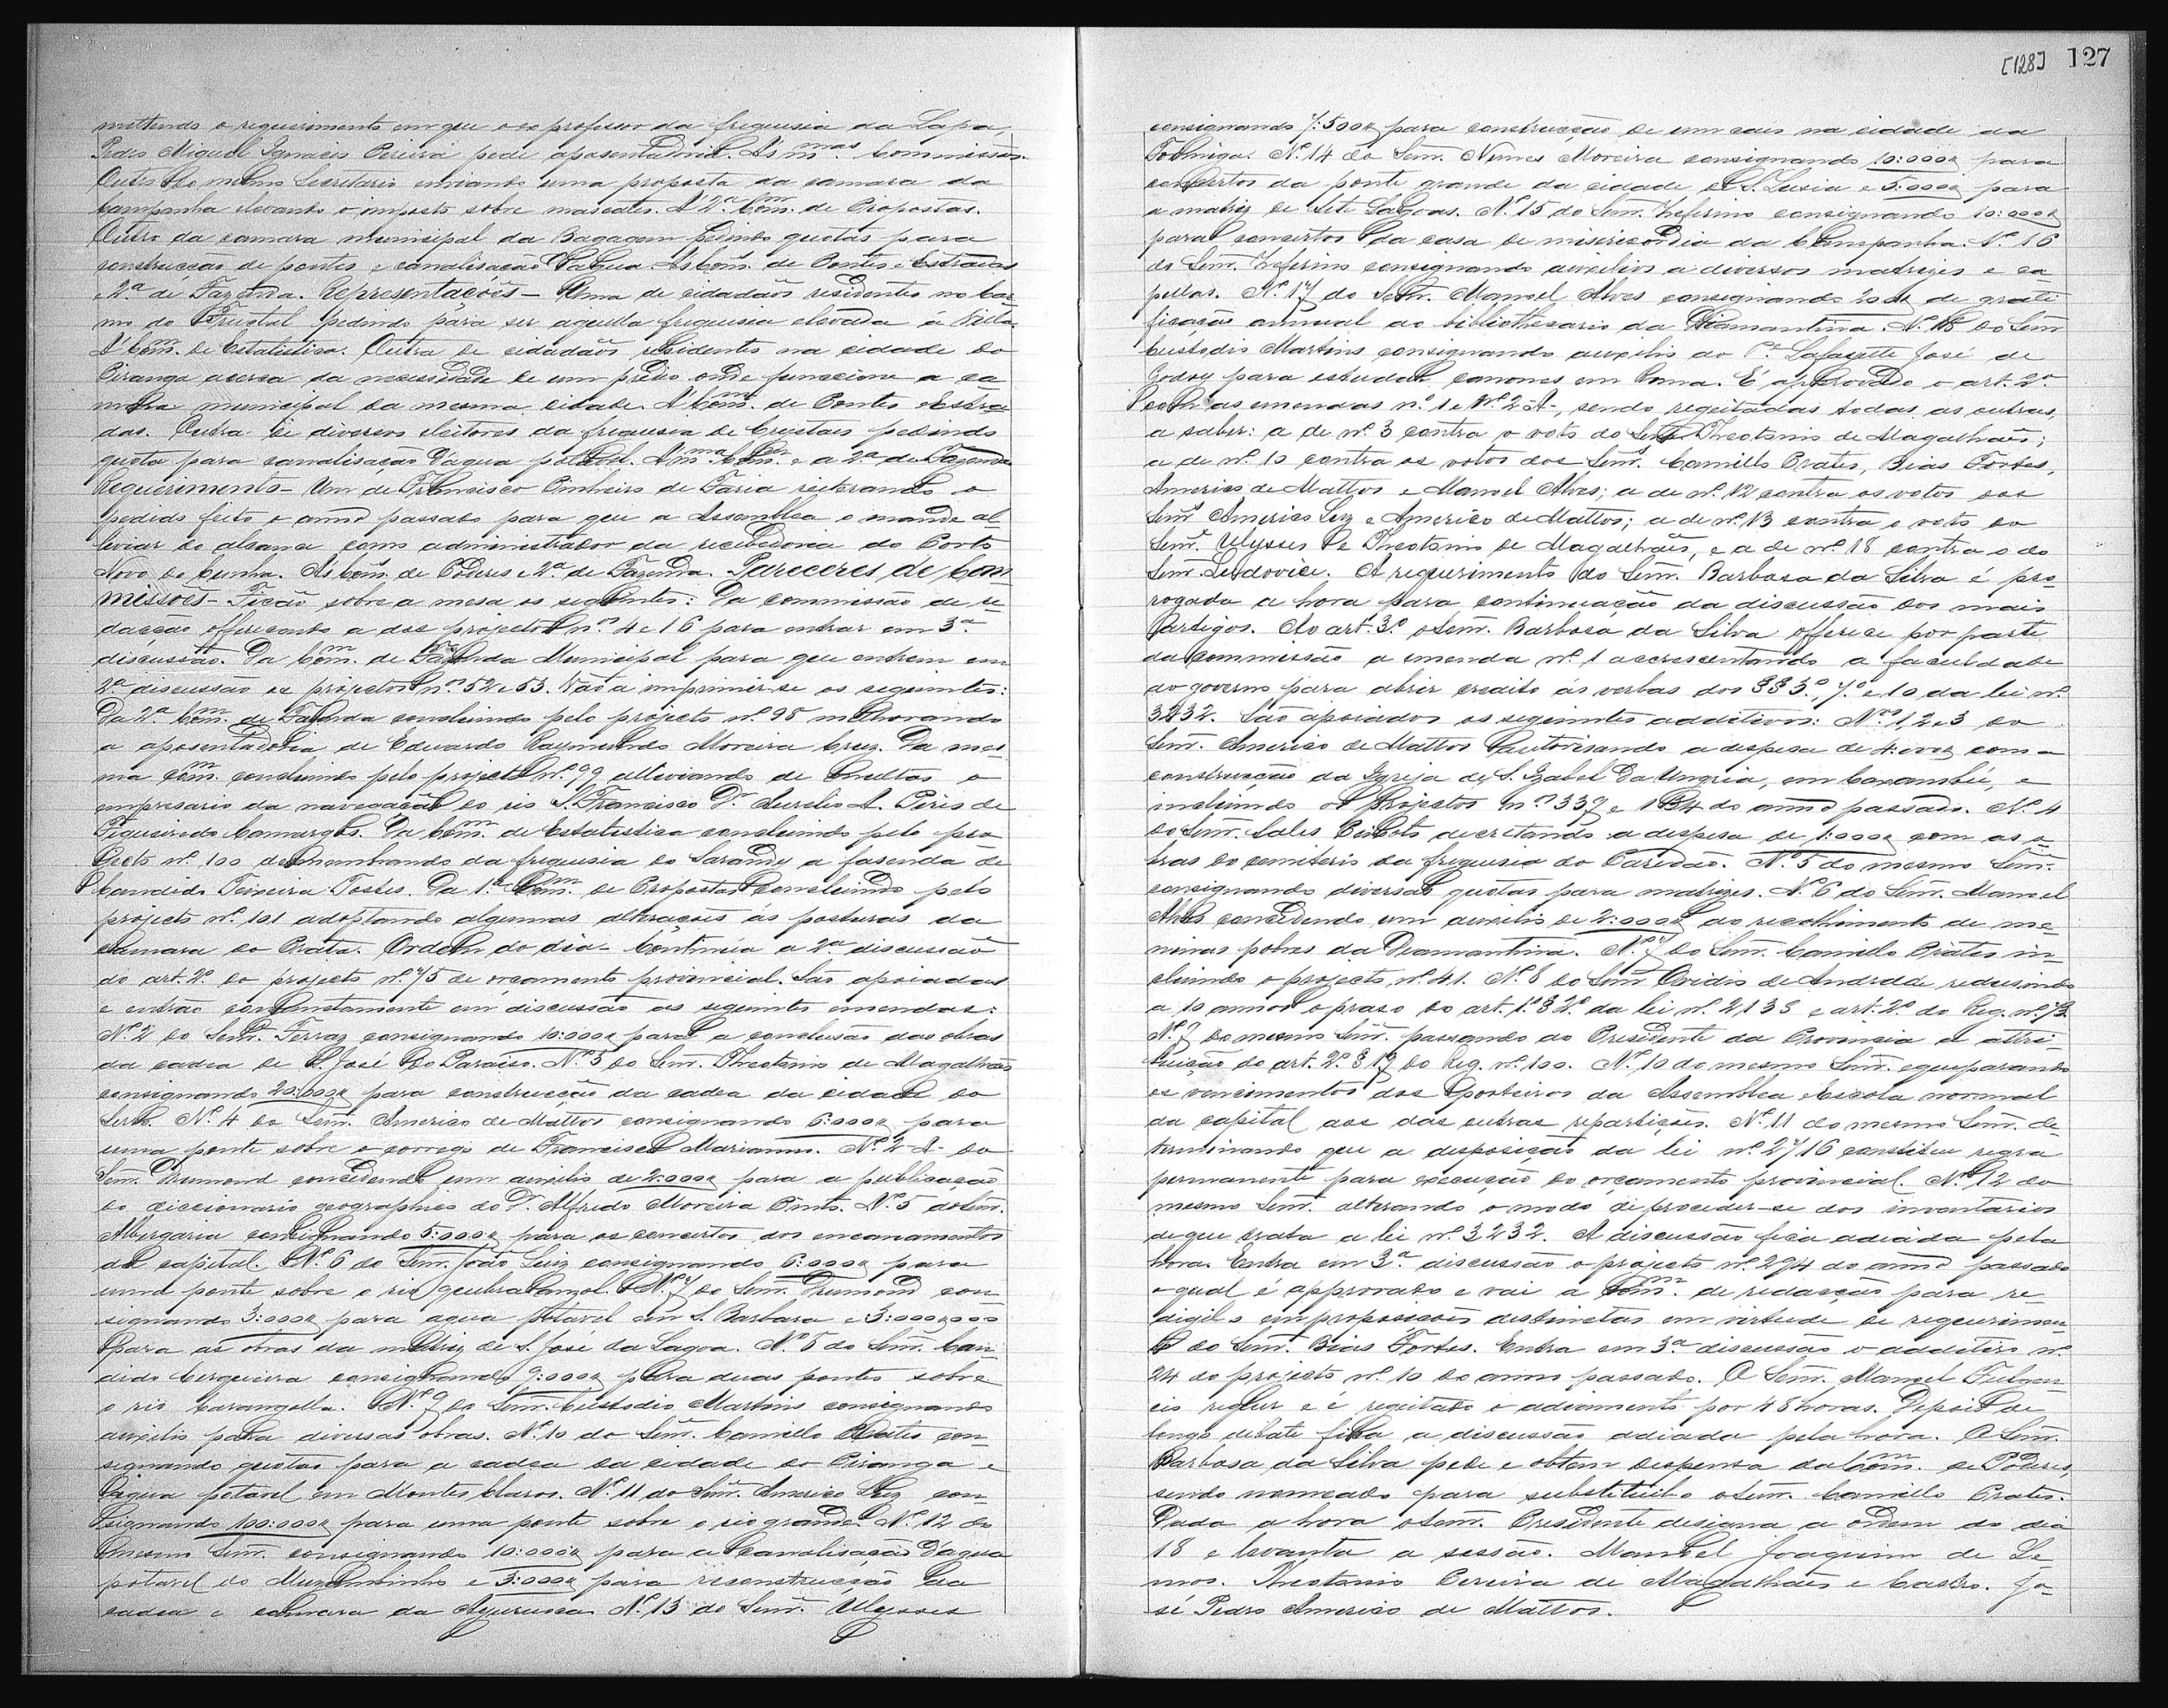 mettendo o requerimento em que o ex professor da freguesia da Lapa,
Pedro Miguel Ignacio Pereira pede aposentadoria. Ás mmas. Commissões.
Outro do mesmo Secretario enviando uma proposta da camara da
Campanha elevando o imposto sobre mascates. Á 2ª Com. de Propostas.
Outro da camara municipal da Bagagem pedindo quotas para
construcção de pontes e canalisação d'agua. Ás Coms. de Pontes e Estradas
e 2ª de Fazenda. Representações – Uma de cidadãos residentes no
do Fructal pedindo para ser aquella freguesia elevada á Villa.
Á Com. de Estatistica. Outra de cidadãos residentes na cidade do
Piranga acerca da necessidade de um predio onde funccione a ca
mara municipal da mesma cidade. Á Com. de Pontes e Estra
das. Outra de diversos eleitores da freguesia de Crystaes pedindo
quota para canalisação d'agua potavel. Á mma. Com. e a 2ª de Fazenda
Requerimento – Um de Francisco Pinheiro de Faria reiterando o
pedido feito o anno passado para que a Assemblea o mande al
liviar do alcance como administrador da recebedoria do Porto
Novo do Cunha. Ás Coms. de Poderes e 2ª de Fazenda. Pareceres de Com
missões – Ficão sobre a mesa os seguintes: Da commissão de re
dacção offerecendo a dos projectos nos 4 e 16 para entrar em 3ª
discussão. Da Com. de Fazenda Municipal para que entrem em
2ª discussão os projectos nos 52 e 53. Vão a imprimir-se os seguintes:
Da 2ª Com. de Fazenda concluindo pelo projecto nº 98 melhorando
a aposentadoria de Eduardo Raymundo Moreira Cruz. Da mes
ma Com. concluindo pelo projecto nº 99 alliviando de multas o
empresario da navegação do rio S. Francisco Dr. Aurelio A. Pires de
Figueiredo Camargos. Da Com. de Estatistica concluindo pelo pro
jecto nº 100 desmembrando da freguesia do Sarandy a fasenda de
Candido Teixeira Tostes. Da 1ª Com. de Propostas concluindo pelo
projecto nº 101 adoptando algumas alterações ás posturas da
camara do Prata. Ordem do dia – Continúa a 2ª discussão
do art. 2º do projecto nº 75 de orçamento provincial. São apoiadas
e entrão conjunctamente em discussão as seguintes emendas:
Nº 2 do Senr. Ferraz consignando 10:000$ para a conclusão das obras
da cadea de S. José do Paraiso. Nº 3 do Senr. Theotonio de Magalhães
consignando 20:000$ para construcção da cadea da cidade do
Serro. Nº 4 do Senr. Americo de Mattos consignando 6:000$ para
uma ponte sobre o corrego de Francisco Marianno. Nº 2–A– do
Senr. Drumond concedendo um auxilio de 2:000$ para a publicação
do diccionario geographico do Dr. Alfredo Moreira Pinto. Nº 5 do Senr.
Albergaria consignando 5:000$ para os concertos dos encanamentos
da capital. Nº 6 do Senr. João Luiz consignando 6:000$ para
uma ponte sobre o rio quebra Anzol. Nº 7 do Senr. Drumond con
signando 3:000$ para agua potavel em S. Barbara e 3:000$000
para as obras da matriz de S. José da Lagoa. Nº 8 do Senr. Can
dido Cerqueira consignando 9:000$ para duas pontes sobre
o rio Carangolla. Nº 9 do Senr. Custodio Martins consignando
auxilio para diversas obras. Nº 10 do Senr. Camillo Prates con
signando quotas para a cadea da cidade do Piranga e
d'agua potavel em Montes Claros. Nº 11 do Senr. Americo Luz con
signando 100:000$ para uma ponte sobre o rio grande. Nº 12 do
mesmo Senr. consignando 10:000$ para a canalisação d'agua
potavel do Muzambinho e 3:000$ para reconstrucção da
cadea e camara da Ayuruoca. Nº 13 do Senr. Ulysses
[128] 127
consignando 7:500$ para construcção de um caes na cidade da
Formiga. Nº 14 do Senr. Nunes Moreira consignando 10:000$ para
concertos da ponte grande da cidade de S. Luzia e 5:000$ para
a matriz de Sete Lagoas. Nº 15 do Senr. Zeferino consignando 10:000$
para concertos da casa de misericordia da Campanha. Nº 16
do Senr. Zeferino consignando auxilios a diversos matrizes e ca
pellas. Nº 17 do Senr. Manoel Alves consignando 200$ de grati
ficação annual ao bibliothecario da Diamantina. Nº 18 do Senr
Custodio Martins consignando auxilio ao Pe. Lafayette José de
Godoy para estudar canones em Roma. É approvado o art. 2º
com as emendas nº 1 e nº 2–A–, sendo regeitadas todas as outras,
a saber: a de nº 3 contra o voto do Senr. Theotonio de Magalhães;
a de nº 10 contra os votos dos Senrs. Camillo Prates, Bias Fortes,
Americo de Mattos e Manoel Alves; a de nº 12 contra os votos dos
Senrs Americo Luz e Americo de Mattos; a de nº 13 contra o voto do
Senr. Ulysses e Theotonio de Magalhães, e a de nº 18 contra o do
Senr. Ludovice. A requerimento do Senr. Barbosa da Silva é pro
rogada a hora para continuação da discussão dos mais
artigos. Ao art. 3º o Senr. Barbosa da Silva offerece por parte
da commissão a emenda nº 1 accrescentando a faculdade
do governo para abrir credito ás verbas dos §§ 3º, 7º e 10 da lei nº
3232. São apoiados os seguintes additivos: Nos 1, 2 e 3 do
Senr. Americo de Mattos autorisando a despesa de 4:000$ com a
construcção da Igreja de S. Izabel da Ungria, em Caxambú, e
incluindo os projectos nos 337 e 134 do anno passado. Nº 4
do Senr. Sales Peixoto decretando a despesa de 1:000$ com as o
bras do cemiterio da freguesia do Paredão. Nº 5 do mesmo Senr.
consignando diversas quotas para matrizes. Nº 6 do Senr. Manoel
Alves concedendo um auxilio de 2:000$ ao recolhimento de me
ninas pobres da Diamantina. Nº 7 do Senr. Camillo Prates in
cluindo o projecto nº 41. Nº 8 do Senr. Ovidio de Andrade reduzindo
a 10 annos o praso do art. 1º § 2º da lei nº 2138 e art. 2º do Reg. nº 73.
Nº 9 do mesmo Senr. passando do Presidente da Provincia a attri-
buição do art. 2º § 19 do Reg. nº 100. Nº 10 do mesmo Senr. equiparando
os vencimentos dos porteiros da Assemblea e Escola normal
da capital aos das outras repartições. Nº 11 do mesmo Senr. de-
terminando que a disposição da lei nº 2716 constitue regra
permanente para execução do orçamento provincial. Nº 12 do
mesmo Senr. alterando o modo de proceder-se aos inventarios
de que trata a lei nº 3232. A discussão fica adiada pela
hora. Entra em 3ª discussão o projecto nº 294 do anno passado
o qual é approvado e vai a Com. de redacção para re-
digil-o em proposições distinctas em virtude de requerimen-
to do Senr. Bias Fortes. Entra em 3ª discussão o additivo nº
24 do projecto nº 10 do anno passado. O Senr. Manoel Fulgen-
cio requer e é regeitado o adiamento por 48 horas. Depois de
longo debate fica a discussão adiada pela hora. O Senr.
Barbosa da Silva pede e obtem dispensa da Com. de Poderes,
sendo nomeado para substituil-o o Senr. Camillo Prates.
Dada a hora o Senr. Presidente designa a ordem do dia
18 e levanta a sessão. Manoel Joaquim de Le
mos. Theotonio Pereira de Magalhães e Castro. Jo-
sé Pedro Americo de Mattos.